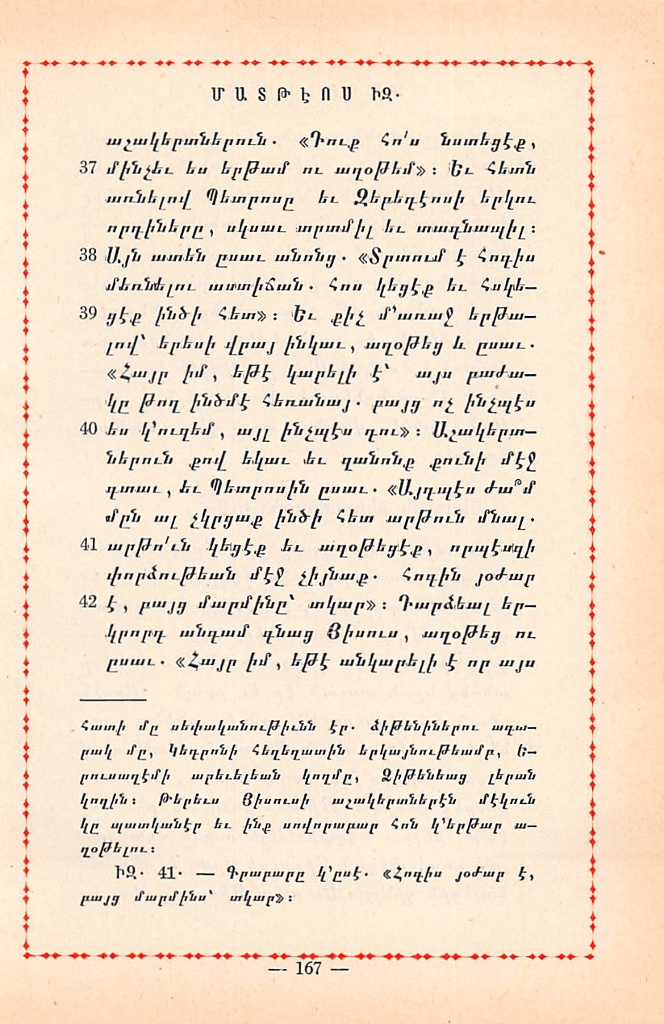 ՄԱՏԹԷՈՍ ԻԶ.
աշակերտներուն. «Դուք հո՛ս նստեցէք,
37 մինչեւ ես երթամ ու աղօթեմ»: Եւ հետն
առնելով Պետրոսը եւ Զեբեդէոսի երկու
որդիները, սկսաւ տրտմիլ եւ տագնապիլ:
38 Այն ատեն ըսաւ անոնց. «Տրտում է հոգիս
մեռնելու աստիճան. հոս կեցէք եւ հսկե—
39 ցէք ինծի հետ»: Եւ քիչ մ՚առաջ երթա—
լով՝ երեսի վրայ ինկաւ, աղօթեց և ըսաւ.
«Հայր իմ, եթէ կարելի է՝ այս բաժա—
կը թող ինձմէ հեռանայ. բայց ոչ ինչպէս
40 ես կ՚ուզեմ, այլ ինչպէս դու»: Աշակերտ—
ներուն քով եկաւ եւ զանոնք քունի մէջ
գտաւ, եւ Պետրոսին ըսաւ. «Այդպէս ժա՞մ
մըն ալ չկրցաք ինծի հետ արթուն մնալ.
41 արթո՛ւն կեցէք եւ աղօթեցէք, որպէսզի
փորձութեան մէջ չիյնաք. հոգին յօժար
42 է, բայց մարմինը՝ տկար»: Դարձեալ եր—
կրորդ անգամ գնաց Յիսուս, աղօթեց ու
ըսաւ. «Հայր իմ, եթէ անկարելի է որ այս
հատի մը սեփականութիւնն էր. ձիթենիներու ագա—
րակ մը, Կեդրոնի հեղեղատին երկայնութեամբ, Ե—
րուսաղէմի արեւելեան կողմը, Ձիթենեաց լերան
կողին: Թերեւս Յիսուսի աշակերտներէն մէկուն
կը պատկանէր եւ ինք սովորաբար հոն կ՚երթար ա—
ղօթելու:
ԻԶ. 41. — Գրաբարը կ՚ըսէ. «Հոգիս յօժար է,
բայց մարմինս՝ տկար»:
— 167 —